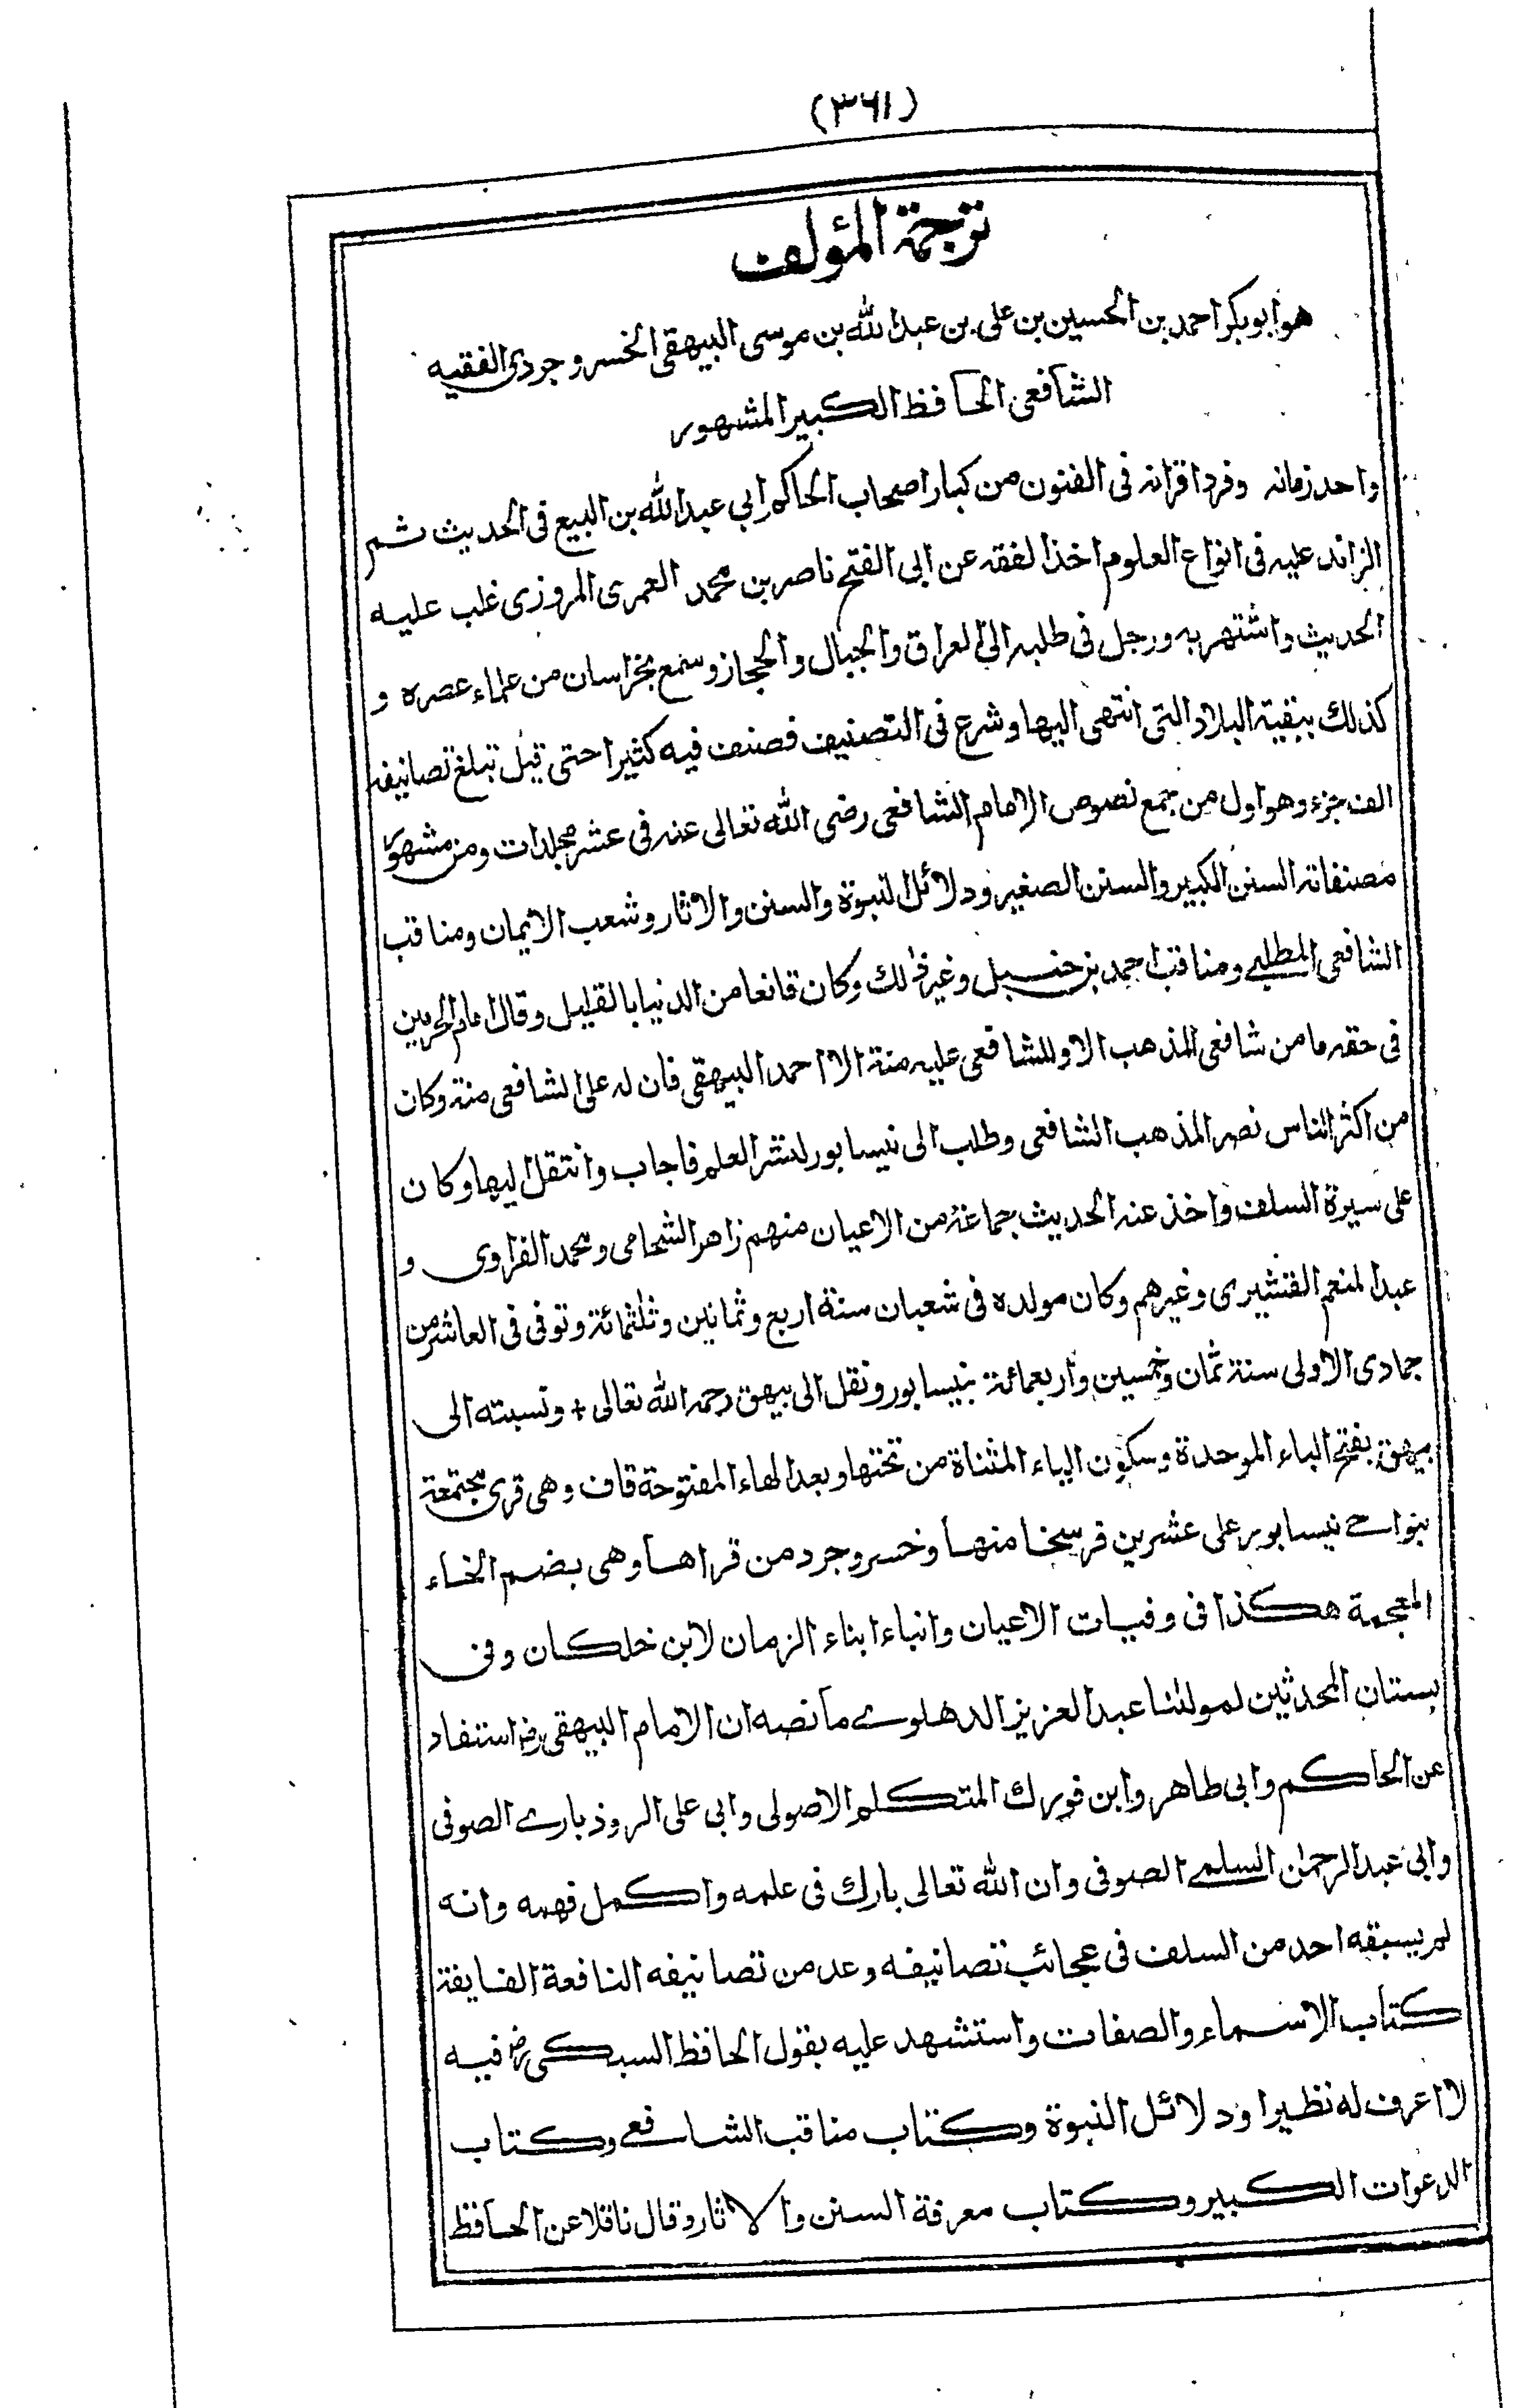 (٣٦١)
ترجمة المؤلف
هو ابو بكر احمد بن الحسين بن علی بن عبد الله بن موسی البيهقی الخسروجردی الفقيه
الشافعی الحافظ الكبير المشهور
واحد زمانه وفرد اقرانه فی الفنون من كبار اصحاب الحاكم ابی عبد الله بن البيع فی الحديث ثم
الزائد عليه فی انواع العلوم اخذ الفقه عن ابی الفتح ناصر بن محمد العمری المروزی غلب عليه
الحديث واشتهر به ورجل فی طلبه الی العراق والجبال والحجاز وسمع بخراسان من علماء عصره و
كذلك ببقية البلاد التی انتهی اليها وشرع فی التصنيف فصنف فيه كثيرا حتی قيل تبلغ تصانيفه
الف جزء وهو اول من جمع نصوص الامام الشافعی رضی الله تعالی عنه فی عشر مجلدات ومن مشهور
مصنفاته السنن الكبير والسنن الصغير ودلائل النبوة والسنن والاثار وشعب الايمان ومناقب
الشافعی المطلبے ومناقب احمد بن حنبل وغير ذلك وكان قانعا من الدنيا بالقليل وقال امام الحرمين
فی حقه ما من شافعی المذهب الا وللشافعی عليه منة الا احمد البيهقی فان له علی الشافعی منة وكان
من اكثر الناس نصر المذهب الشافعی وطلب الی نيسابور لنشر العلم فاجاب وانتقل اليها وكان
علی سيرة السلف واخذ عنه الحديث جماعة من الاعيان منهم زاهر الشحامی ومحمد الفراوی و
عبد المنعم القشيری وغيرهم وكان مولده فی شعبان سنة اربع وثمانين وثلثمائة وتوفی فی العاشر من
جمادی الاولی سنة ثمان وخمسين واربعمائة بنيسابور ونقل الی بيهق رحمه الله تعالی + ونسبته الی
بيهق بفتح الباء الموحدة وسكون الياء المثناة من تحتها وبعد الهاء المفتوحة قاف وهی قری مجتمعة
بنواحے نيسابور علی عشرين فرسخا منها وخسروجرد من قراها وهی بضم الخاء
المعجمة هكذا فی وفيات الاعيان وانباء ابناء الزمان لابن خلكان وفی
بستان المحدثين لمولٰنا عبد العزيز الدهلوے ما نصه ان الامام البيهقی رض استفاد
عن الحاكم وابی طاهر وابن فورك المتكلم الاصولی وابی علی الروذبارے الصوفی
وابی عبد الرحمٰن السلمے الصوفی وان الله تعالی بارك فی علمه واكمل فهمه وانه
لم يسبقه احد من السلف فی عجائب تصانيفه وعد من تصانيفه النافعة الفايقة
كتاب الاسماء والصفات واستشهد عليه بقول الحافظ السبكی رض فيه
لا اعرف له نظيرا ودلائل النبوة وكتاب مناقب الشافعے وكتاب
الدعوات الكبير وكتاب معرفة السنن والاثار وقال ناقلا عن الحافظ